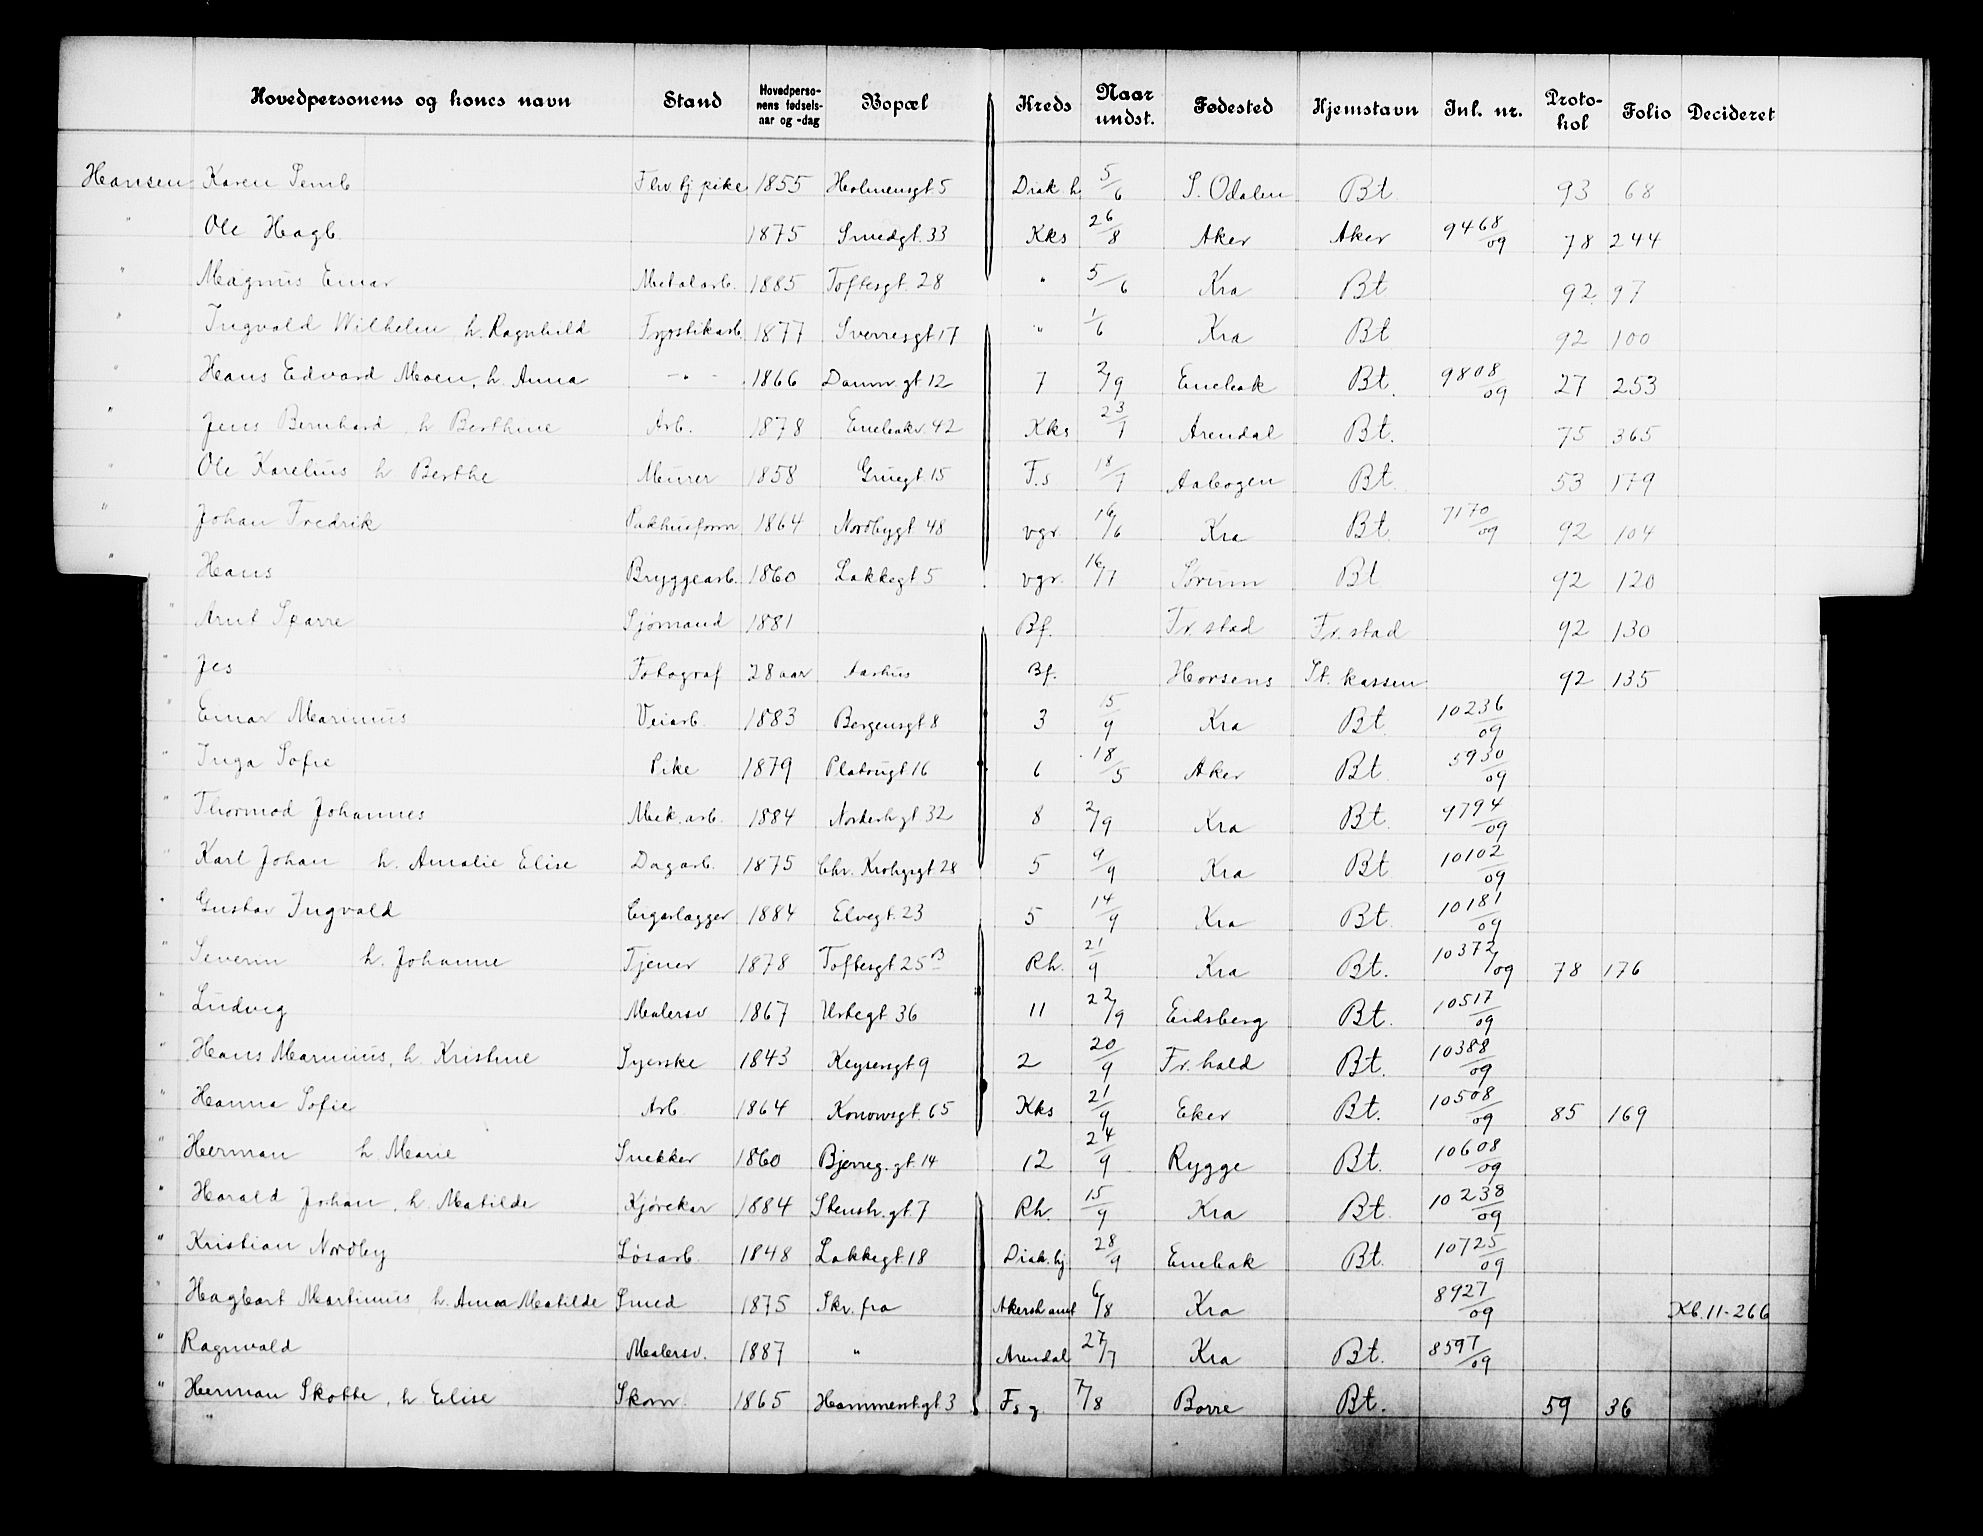 Hovedpersonens og kones navn Stand Hovedpersonens fødselsaar og -dag Bopæl Kreds Naar undst. Fødested Hjemstavn Inl. nr. Protokol Folio Decideret
Hansen Karen Semb pike 1855 Holmensgt 5 Diak h. 5/6 S. Odalen Bt 93 68
" Ole Hagb 1875 Smedgt. 33 Kks 26/8 Aker Aker 9468/09 78 244
" Magnus Einar Metalarb. 1885 Toftesgt. 28 " 5/6 Kra Bt 92 97
" Ingvald Wilhelm h. Ragnhild 1877 Sverresgt 17 " 1/6 Kra Bt 92 100
" Hans Edvard Moen, h. Anna - " - 1866 Danm. gt 12 7 2/9 Enebak Bt. 9808/09 27 253
" Jens Bernhard h Berthine Arb. 1878 Enebakv. 42 Kks 23/7 Arendal Bt. 75 365
" Ole Karelius h Berthe Murer 1858 Gruegt. 15 F.s 18/7 Aabogen Bt. 53 179
" Johan Fredrik Pakhusform 1864 Nordbygt 48 vgr 16/6 Kra Bt. 7170/09 92 104
" Hans Bryggearb. 1860 Lakkegt 5 vgr. 16/7 Sørum Bt 92 120
" Arnt Sparre Sjømand 1881 Bf. Fr. stad Fr. stad 92 130
" Jes Fotograf 28 aar Aarhus Bf. Horsens St. kassen 92 135
" Einar Marinius Veiarb. 1883 Bergensgt 8 3 15/9 Kra Bt 10236/09
" Inga Sofie Pike 1879 Platousgt 16 6 18/5 Aker Bt. 5930/09
" Thormod Johannes Mek. arb. 1884 Norderh gt 32 8 2/9 Kra Bt. 9794/09
" Karl Johan h. Amalie Elise Dagarb. 1875 Chr. Krohgsgt 28 5 9/9 Kra Bt 10102/09
" Gustav Ingvald Cigarlægger 1884 Elvegt. 23 5 14/9 Kra Bt. 10181/09
" Severin h. Johanne Tjener 1878 Toftesgt 25 B Rh. 21/9 Kra Bt. 10372/09 78 176
" Ludvig Malersv 1867 Urtegt 36 11 22/9 Eidsberg Bt. 10517/09
" Hans Marinius, h. Kristine Syerske 1843 Keysersgt 9 2 20/9 Fr. hald Bt. 10388/09
" Hanna Sofie Arb 1864 Konowsgt. 65 Kks 21/9 Eker Bt. 10508/09 85 169
" Herman h. Marie Snekker 1860 Bjerreg. gt. 14 12 24/9 Rygge Bt. 10608/09
" Harald Johan, h. Matilde Kjørekar 1884 Stensh. gt. 7 Rh. 15/9 Kra Bt. 10238/09
" Kristian Nordby Løsarb. 1848 Lakkegt. 18 Diak. hj. 28/9 Enebak Bt. 10725/09
" Hagbart Martinius h. Anna Matilde Smed 1875 Skr. fra Akersh amt 6/8 Kra 8927/09 Kb. 11-266
" Ragnvald Malersv. 1887 " Arendal 27/7 Kra Bt. 8597/09
" Herman Skotte, h. Elise Skom. 1865 Hammersb.gt 3 Fs 7/8 Borre Bt. 59 36
"